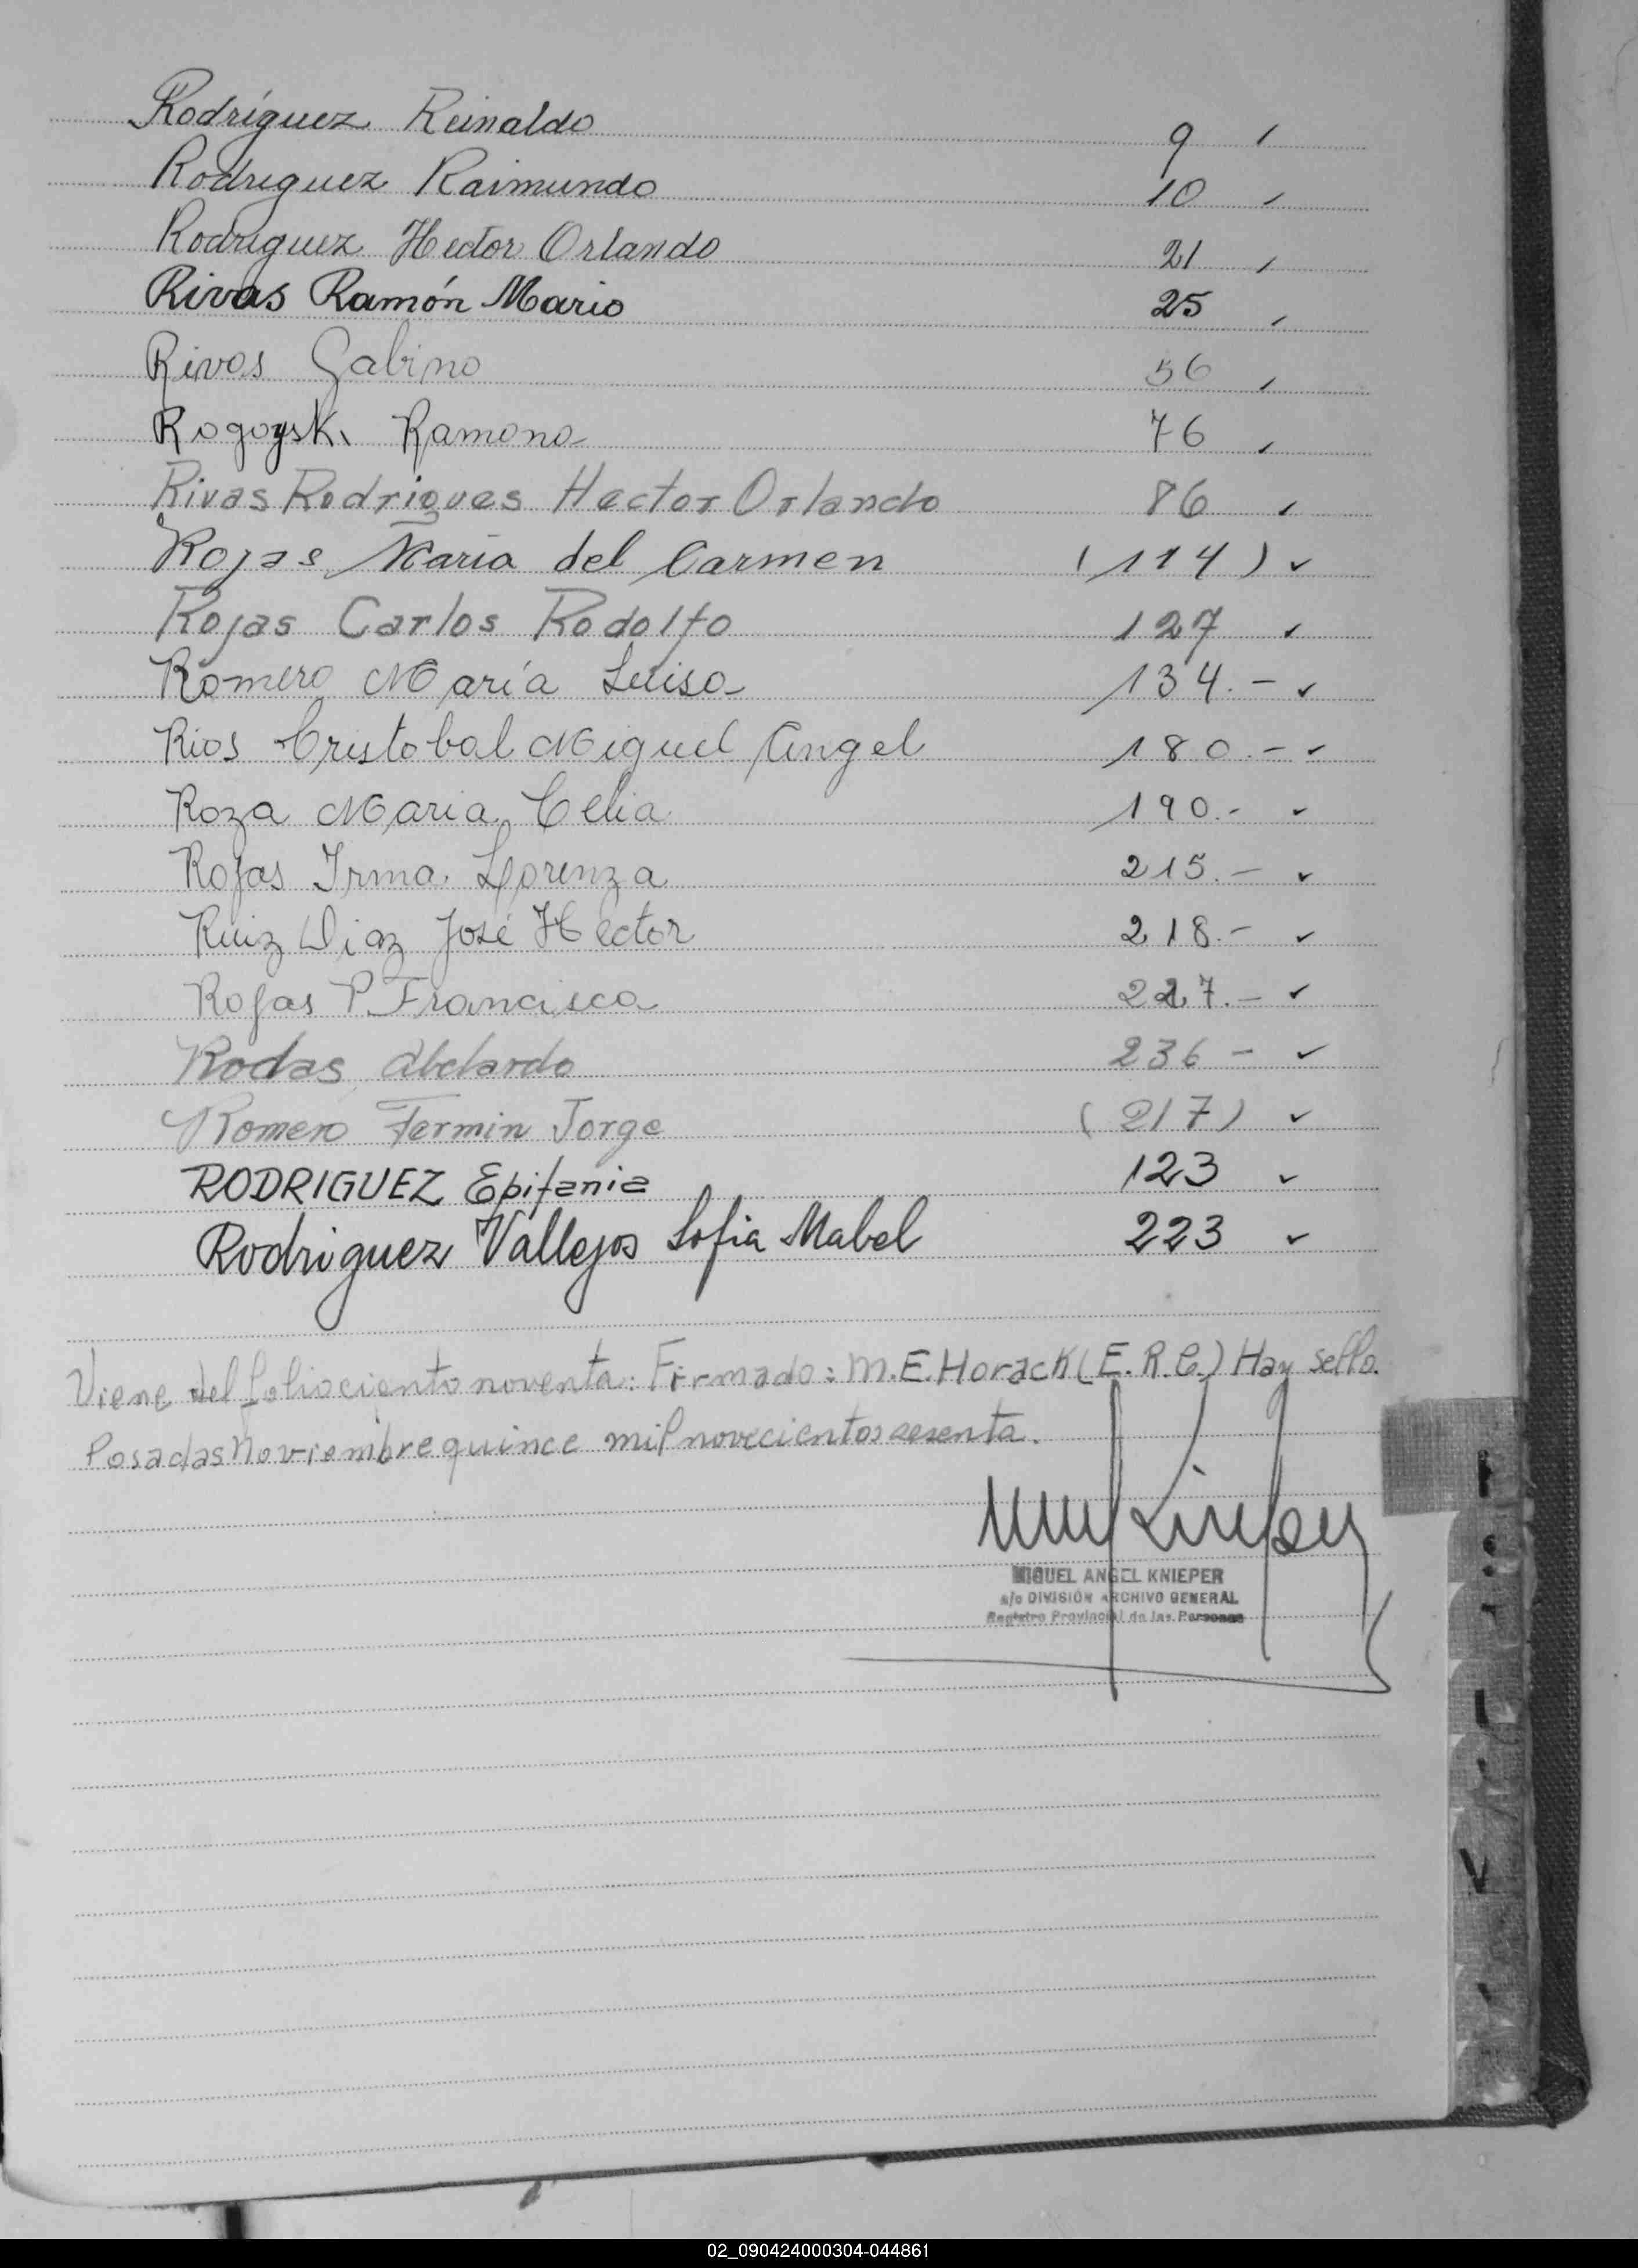 Rodríguez Reinaldo 9
Rodriguez Raimundo 10
Rodriguez Hector Orlando 21
Rivas Ramón Mario 25
Rivas Gabino 56
Rogoyski Ramona 76
Rivas Rodrigues Hector Orlando 86
Rojas Maria del Carmen (114) ✓
Rojas Carlos Rodolfo 127 ✓
Romero María Luisa 134.- ✓
Rios Cristobal Miguel Angel 180.- ✓
Roza Maria Celia 190.- ✓
Rojas Irma Lorenza 215.- ✓
Ruiz Diaz José Hector 218.- ✓
Rojas P. Francisca 227.- ✓
Rodas Abelardo 236 - ✓
Romero Fermin Jorge (217) ✓
RODRIGUEZ Epifania 123 ✓
Rodriguez Vallejos Sofia Mabel 223 ✓
Viene del folio ciento noventa: Firmado: M.E. Horack (E.R.C.) Hay sello.
Posadas Noviembre quince mil novecientos sesenta.
MIGUEL ANGEL KNIEPER
a/c DIVISIÓN ARCHIVO GENERAL
Registro Provincial de las Personas
02_090424000304-044861